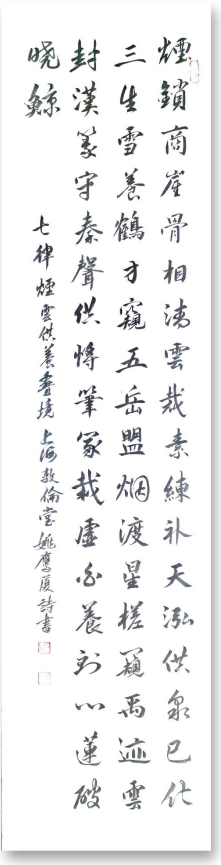 煙鎖商崖骨相清雲裁素練补天泓供泉已化
三生雪養鶴才窺五岳盟烟渡星槎窺禹迹雲
封漢篆守秦聲供將筆冢栽虛白養到心蓮破
曉鯨
七律 煙雲供養畫境 上海敦倫堂 姚鹰厦詩書